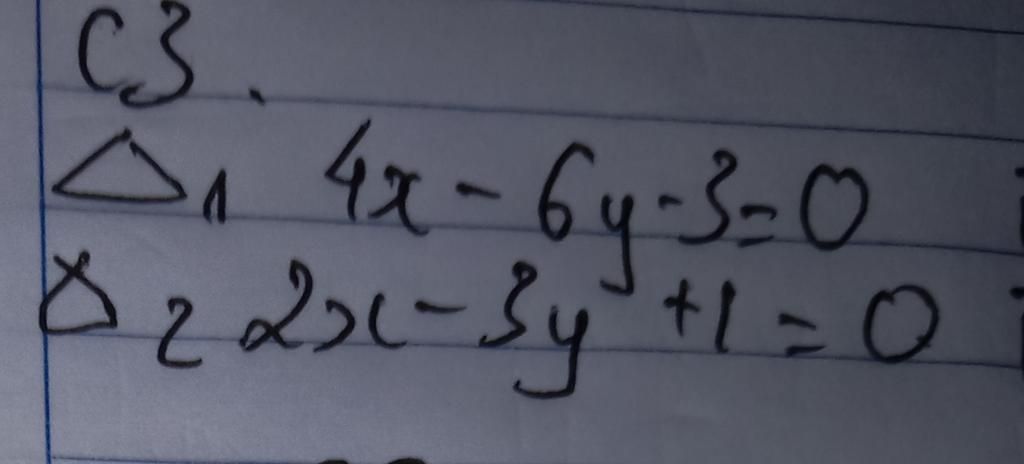 C3.
△1 4x - 6y - 3 = 0
△2 2x - 3y + 1 = 0